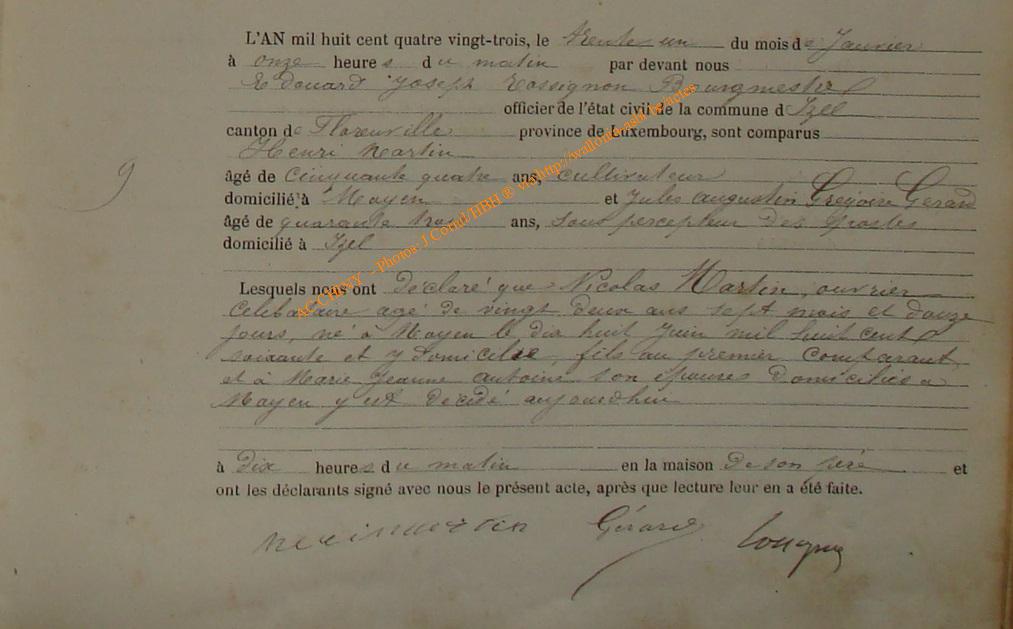 L'AN mil huit cent quatre vingt-trois, le trente un du mois de Janvier
à onze heures du matin par devant nous
Edouard Joseph Rossignon Bourgmestre
officier de l'état civil de la commune d Izel
canton de Florenville province de Luxembourg, sont comparus
Henri Martin
9
âgé de cinquante quatre ans, cultivateur
domicilié à Moyen et Jules augustin Grégoire Gerard
âgé de quarante trois ans, sous percepteur des postes
domicilié à Izel
AC CHINY - Photos: J.Cornil/HBH ® via http://wallonia-asbl.be/actes
Lesquels nous ont déclaré que Nicolas Martin, ouvrier
célibataire agé de vingt deux ans sept mois et douze
jours, né à Moyen le dix huit Juin mil huit cent
soixante et y domicilié, fils du premier comparant
et à Marie Jeanne Antoine son épouse domiciliés à
Moyen y est décédé aujourdhui
à dix heures du matin en la maison de son père et
ont les déclarants signé avec nous le présent acte, après que lecture leur en a été faite.
henrimartin Gérard